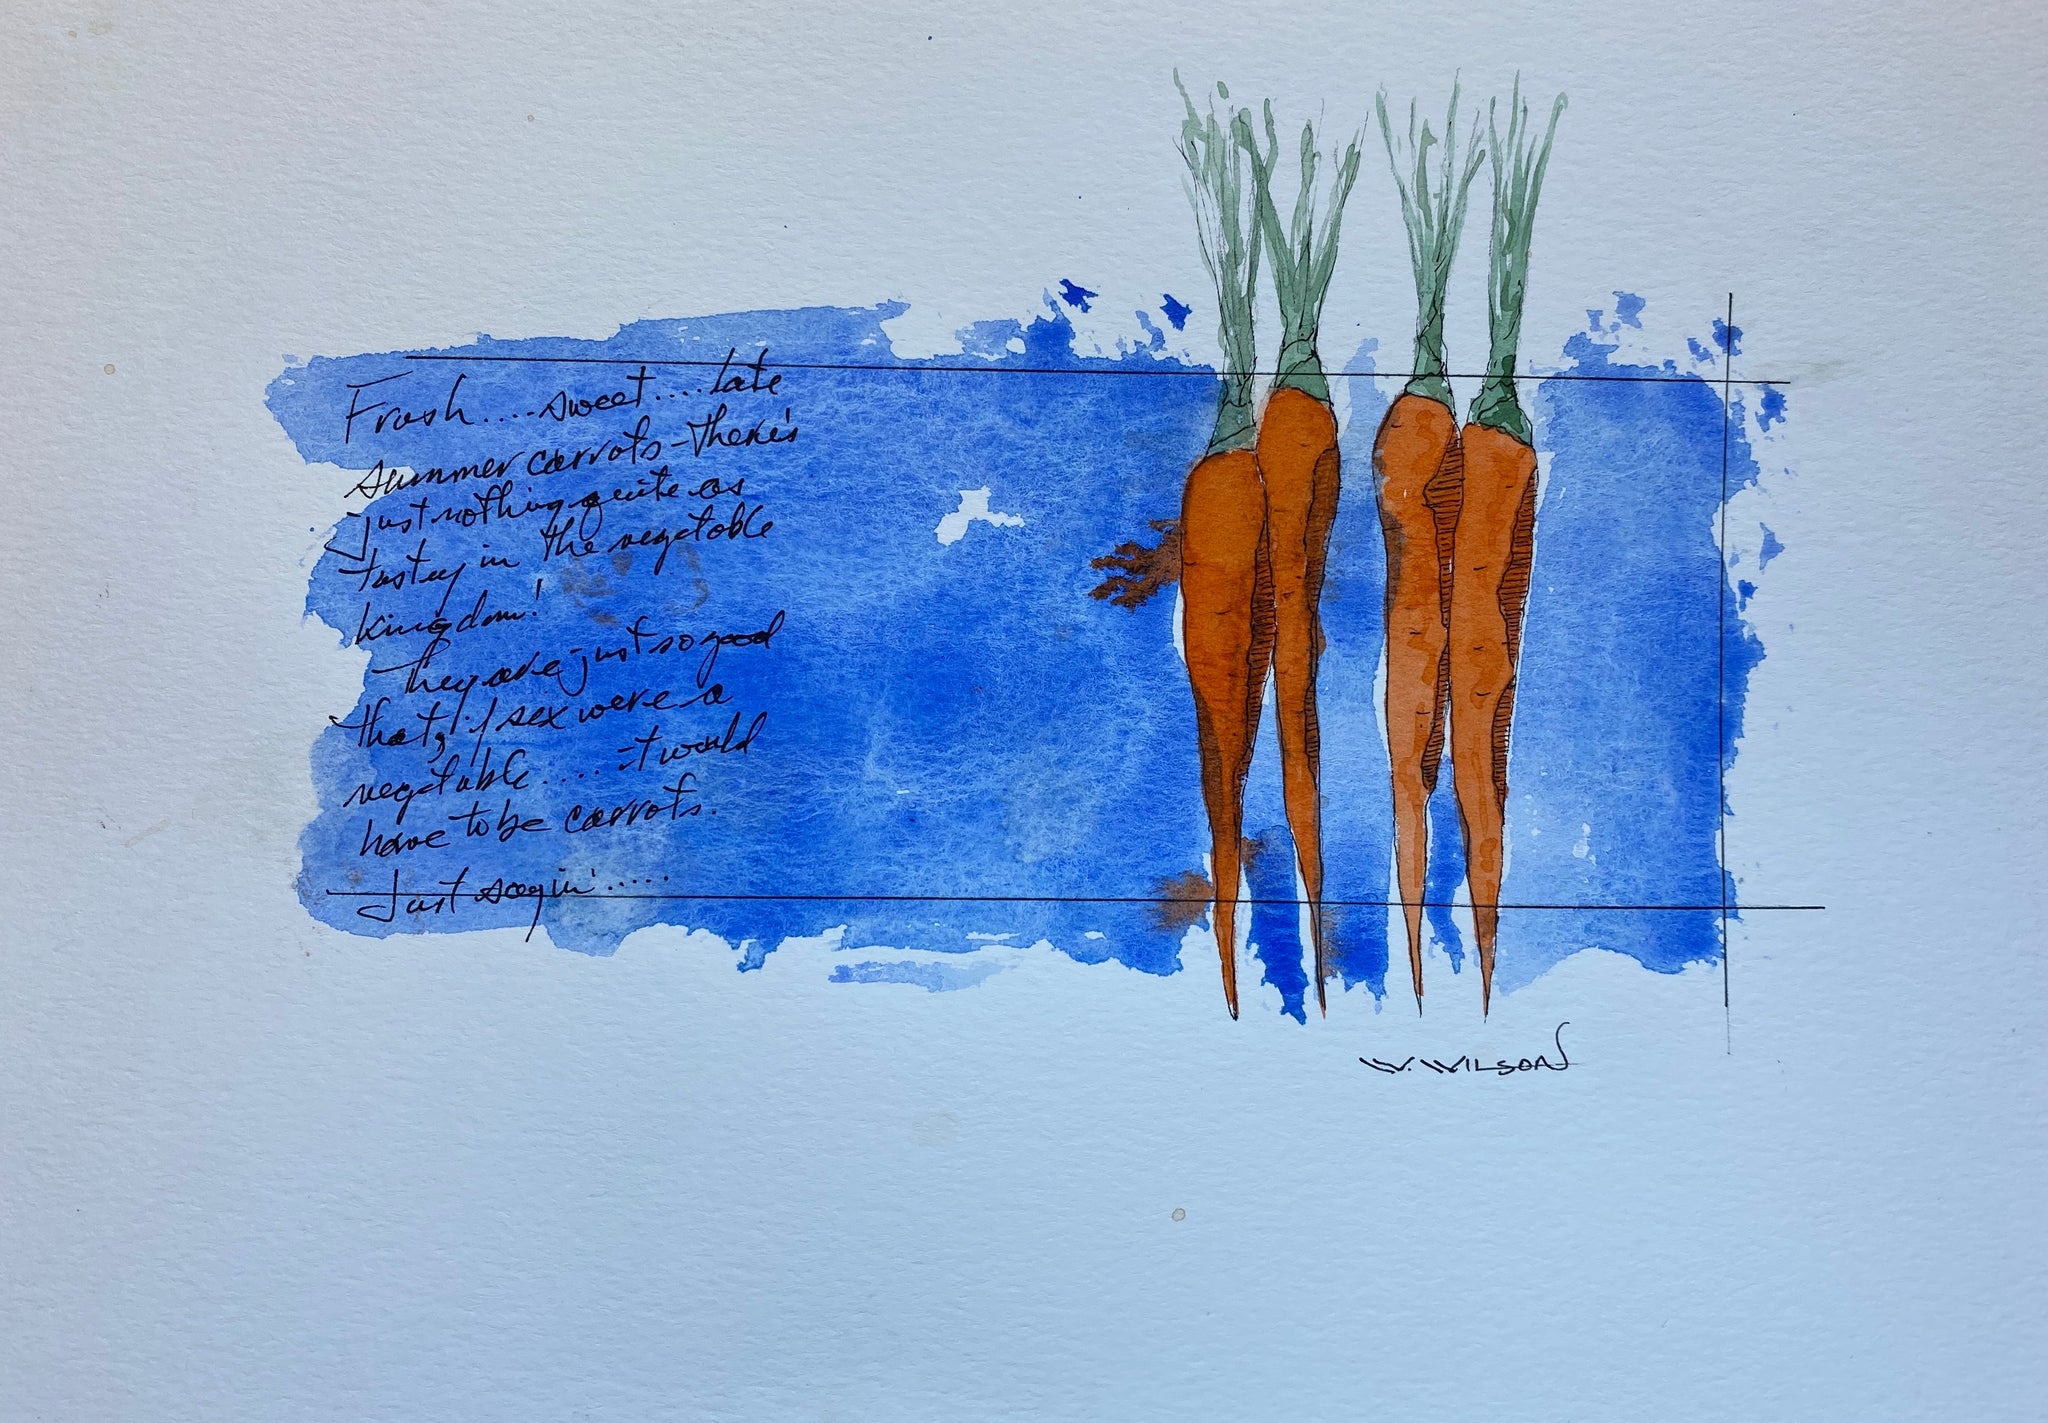 Fresh....sweet....late
summer carrots - there's
just nothing quite as
tasty in the vegetable
kingdom!
They are just so good
that, if sex were a
vegetable.....it would
have to be carrots.
Just sayin'.....
W. WILSON